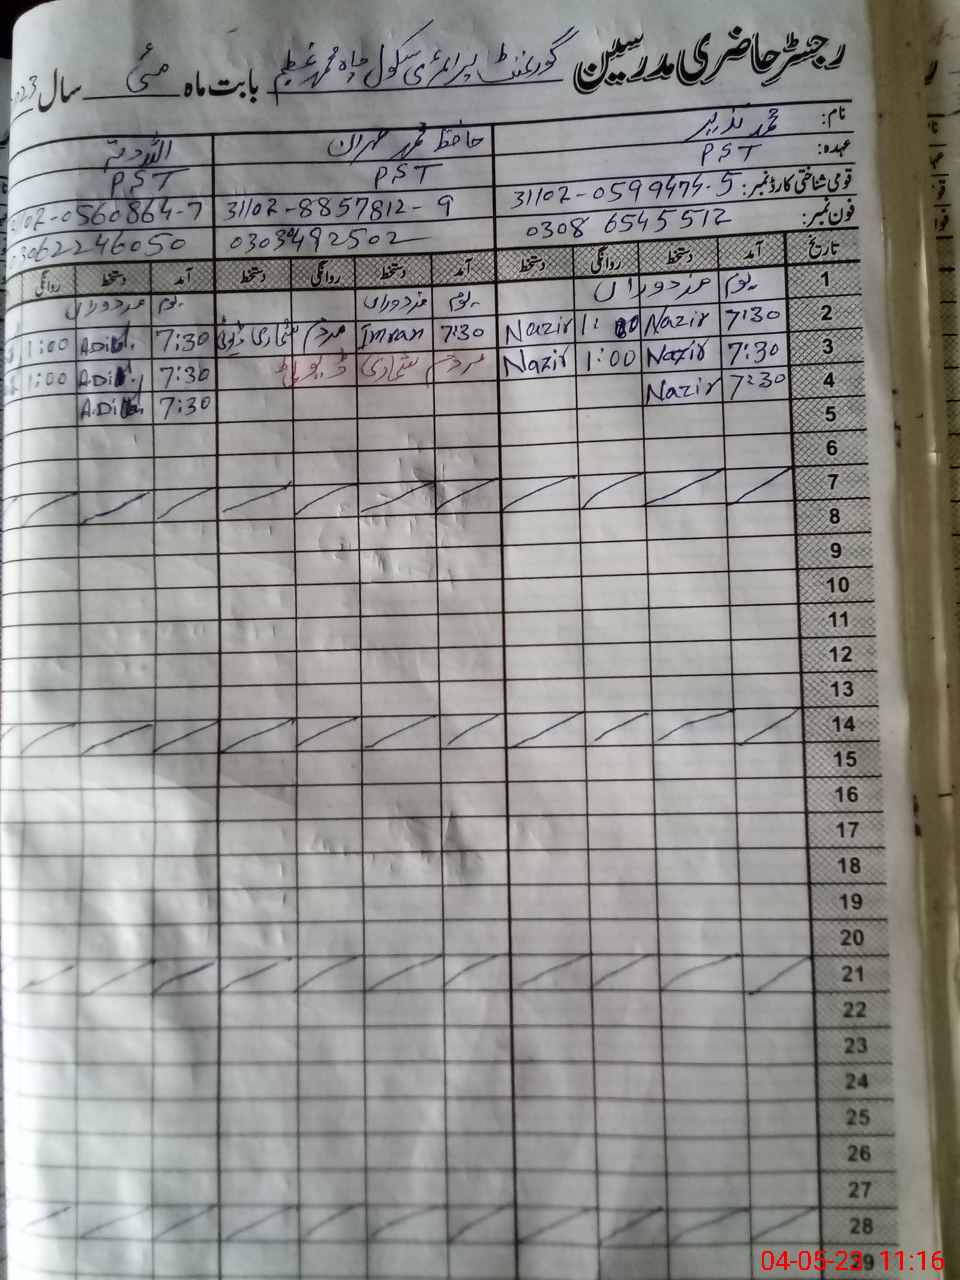 رجسٹر حاضری مدرسین گورنمنٹ پرائمری سکول چاہ محمد عظیم بابت ماہ مئی سال 023
نام: محمد نذیر حافظ محمد عمران اللہ دتہ
عہدہ: PST PST PST
قومی شناختی کارڈ نمبر: 31102-0599474-5 31102-8857812-9 1102-0560864-7
فون نمبر: 0308 6545512 03039492502 3062246050
تاریخ آمد دستخط روانگی دستخط آمد دستخط روانگی دستخط آمد دستخط روانگی
1 یوم مزدوراں یوم مزدوراں یوم مزدوراں
2 7:30 Nazir 1:00 Nazir 7:30 Imran مردم شماری ڈیوٹی 7:30 1:00
3 7:30 Nazir 1:00 Nazir مردم شماری ڈیوٹی 7:30 1:00
4 7:30 Nazir 7:30
5
6
7
8
9
10
11
12
13
14
15
16
17
18
19
20
21
22
23
24
25
26
27
28
29
04-05-23 11:16